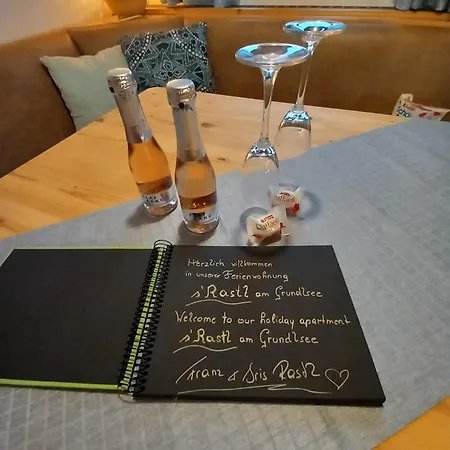 Herzlich willkommen
in unserer Ferienwohnung
s'Rastl am Grundlsee
Welcome to our holiday apartment
s'Rastl am Grundlsee
Franz & Iris Rastl
Raffaello